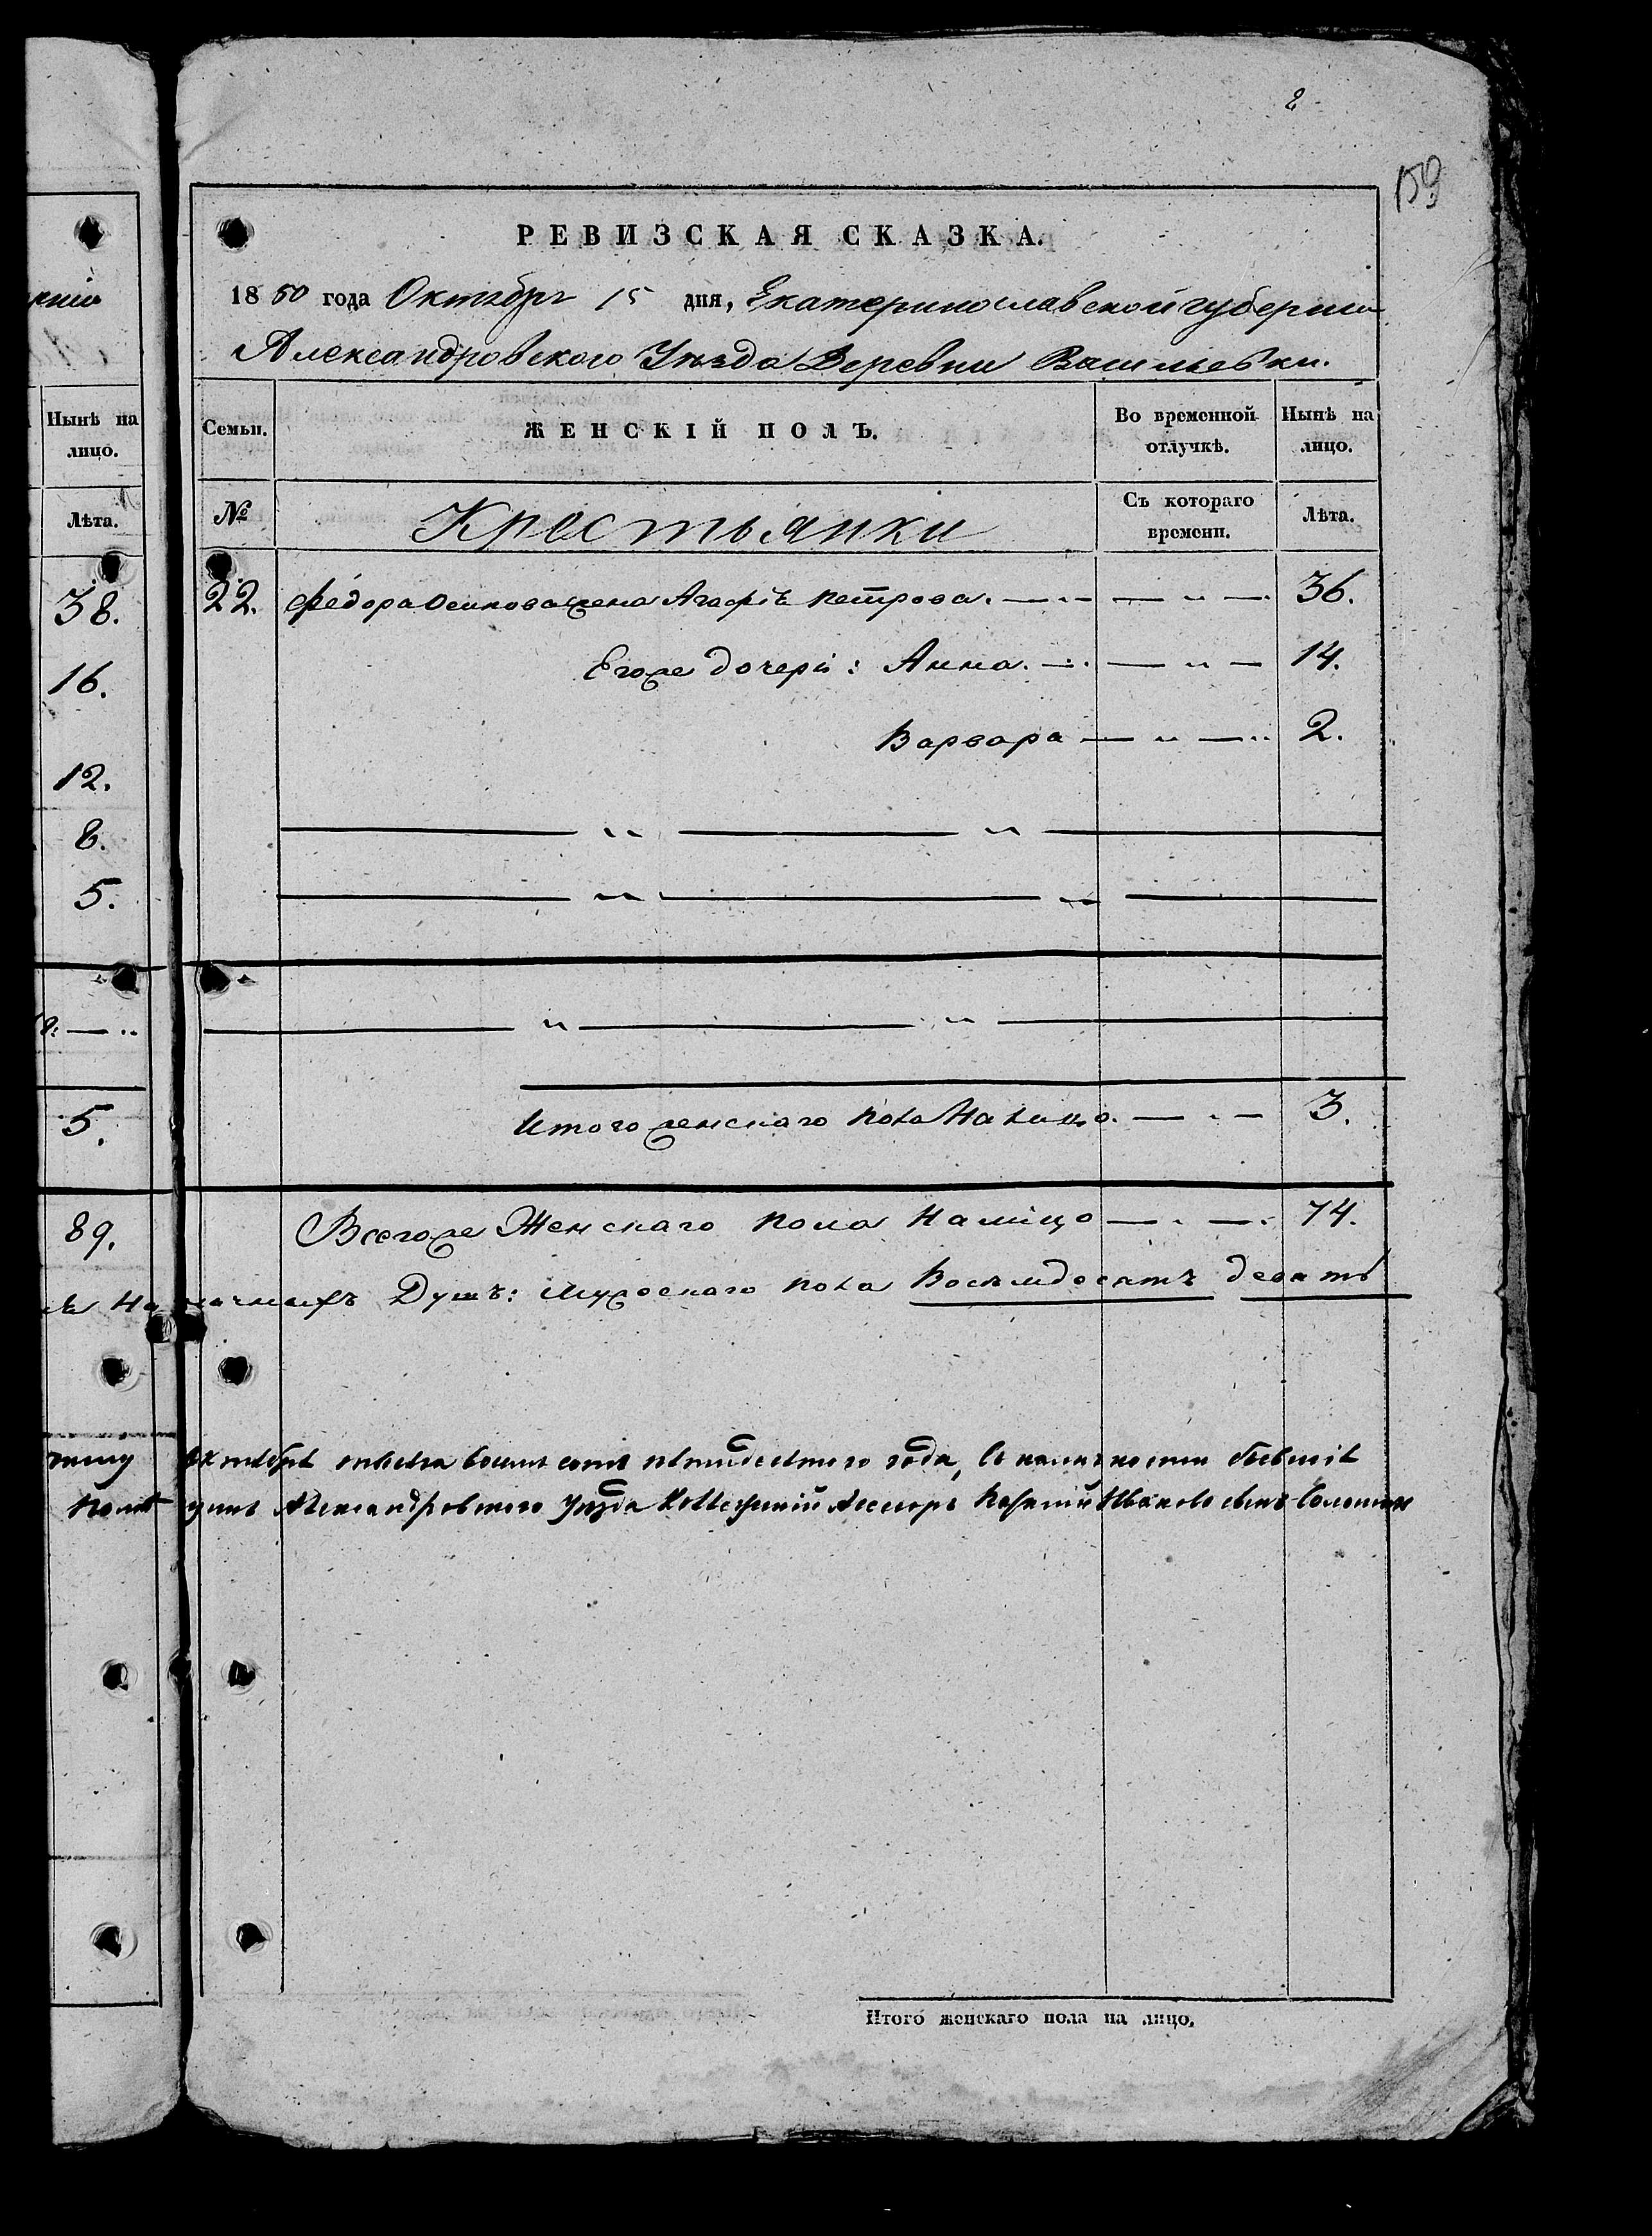 2
159
РЕВИЗСКАЯ СКАЗКА.
1850 года Октября 15 дня, Екатеринославской губернии
Александровского Уезда Деревни Васильевки.
Нынѣ на лицо.
Лѣта.
38.
16.
12.
8.
5.
5.
89.
Семьи.
ЖЕНСКІЙ ПОЛЪ.
Во временной отлучкѣ.
Нынѣ на лицо.
№
Крестьянки
Съ котораго времени.
Лѣта.
22. Федора Осипова жена Агафія Петрова. — „ — „ — 36.
Его же дочери: Анна. — „ — 14.
Варвара — „ — 2.
Итого женскаго пола На лицо. — „ — 3.
Всего же Женскаго пола На лицо — „ — 74.
Душъ: Мужескаго пола Восемдесятъ девять
октября тысяча восемь сотъ пятидесятого года, Съ наличности
Александровского Уезда Коллежский Асессоръ Ивановъ сынъ
Итого женскаго пола на лицо.